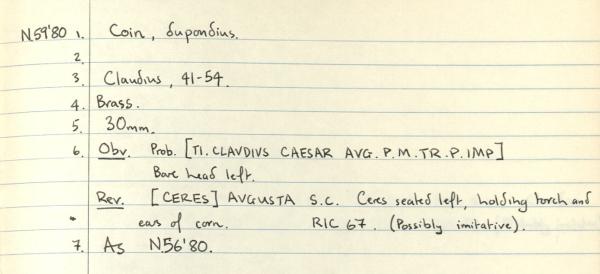 N.59'80 1. Coin, dupondius.
2.
3. Claudius, 41-54.
4. Brass.
5. 30mm.
6. Obv. Prob. [TI. CLAVDIVS CAESAR AVG. P. M. TR. P. IMP]
Bare head left.
Rev. [CERES] AVGUSTA S.C. Ceres seated left, holding torch and
ears of corn. RIC 67. (Possibly imitative).
7. As N.56'80.